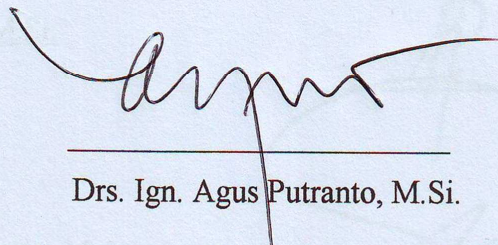 Drs. Ign. Agus Putranto, M.Si.